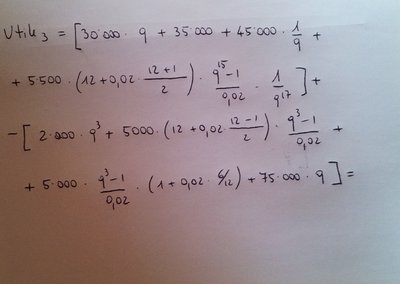 Utile₃ = [30'000 · q + 35'000 + 45'000 · 1/q +
+ 5'500 · (12 + 0,02 · (12+1)/2) · (q¹⁵-1)/0,02 · 1/q¹⁷] +
- [2'000 · q³ + 5000 · (12 + 0,02 · (12-1)/2) · (q³-1)/0,02 +
+ 5'000 · (q³-1)/0,02 · (1 + 0,02 · 6/12) + 75'000 · q] =